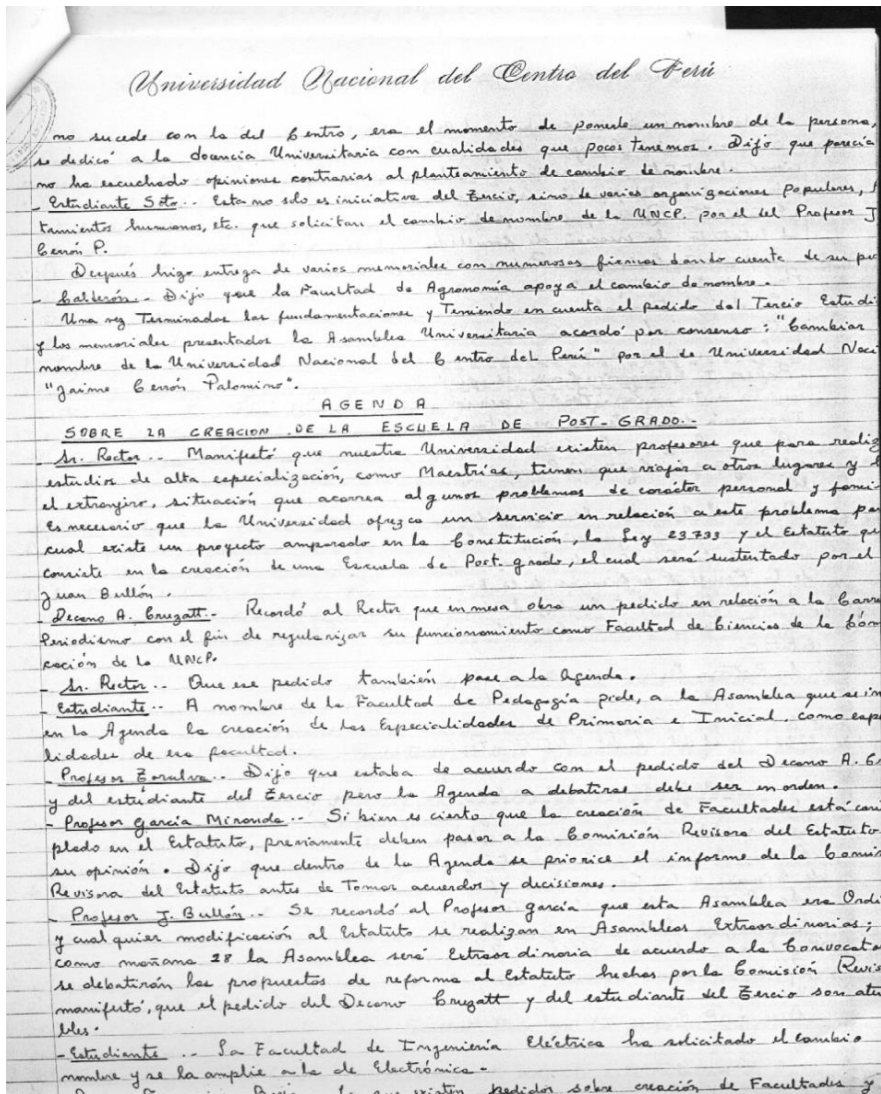 Universidad Nacional del Centro del Perú
no sucede con la del Centro, era el momento de ponerle un nombre de la persona,
se dedicó a la docencia Universitaria con cualidades que pocos tenemos. Dijo que parecía
no ha escuchado opiniones contrarias al planteamiento de cambio de nombre.
- Estudiante Soto.- Esta no solo es iniciativa del Tercio, sino de varias organizaciones populares,
tamientos humanos, etc. que solicitan el cambio de nombre de la UNCP. por el del Profesor J
Cerrón P.
Después hizo entrega de varios memoriales con numerosas firmas dando cuenta de su
- Calderón.- Dijo que la Facultad de Agronomía apoya el cambio de nombre.
Una vez Terminadas las fundamentaciones y Teniendo en cuenta el pedido del Tercio Estudi
y los memoriales presentados la Asamblea Universitaria acordó por consenso: "Cambiar
nombre de la Universidad Nacional del Centro del Perú" por el de Universidad Naci
"Jaime Cerrón Palomino".
AGENDA
SOBRE LA CREACION DE LA ESCUELA DE POST-GRADO.-
- Sr. Rector.- Manifestó que nuestra Universidad existen profesores que para realiz
estudios de alta especialización, como Maestrías, tienen que viajar a otros lugares y
el extranjero, situación que acarrea algunos problemas de carácter personal y fami
Es necesario que la Universidad ofrezca un servicio en relación a este problema par
cual existe un proyecto amparado en la Constitución, la Ley 23733 y el Estatuto qu
consiste en la creación de una Escuela de Post-grado, el cual será sustentado por el
Juan Bullón.
- Decano A. Cruzatt.- Recordó al Rector que en mesa obra un pedido en relación a la Carre
Periodismo con el fin de regularizar su funcionamiento como Facultad de Ciencias de la Com
cación de la UNCP.
- Sr. Rector.- Que ese pedido también pase a la Agenda.
- Estudiante.- A nombre de la Facultad de Pedagogía pide, a la Asamblea que se in
en la Agenda la creación de las Especialidades de Primaria e Inicial, como espe
lidades de esa facultad.
- Profesor .- Dijo que estaba de acuerdo con el pedido del Decano A. C
y del estudiante del Tercio pero la Agenda a debatirse debe ser en orden.
- Profesor García Miranda.- Si bien es cierto que la creación de Facultades está con
plado en el Estatuto, previamente deben pasar a la Comisión Revisora del Estatuto
su opinión. Dijo que dentro de la Agenda se priorice el informe de la Comis
Revisora del Estatuto antes de Tomar acuerdos y decisiones.
- Profesor J. Bullón.- Se recordó al Profesor García que esta Asamblea era Ordi
y cualquier modificación al Estatuto se realizan en Asambleas Extraordinarias;
como mañana 28 la Asamblea será Extraordinaria de acuerdo a la Convocato
se debatirán las propuestas de reforma al Estatuto hechas por la Comisión Revis
manifestó, que el pedido del Decano Cruzatt y del estudiante del Tercio son aten
bles.
- Estudiante.- La Facultad de Ingeniería Eléctrica ha solicitado el cambio
nombre y se la amplíe a la de Electrónica.-
que existen pedidos sobre creación de Facultades y